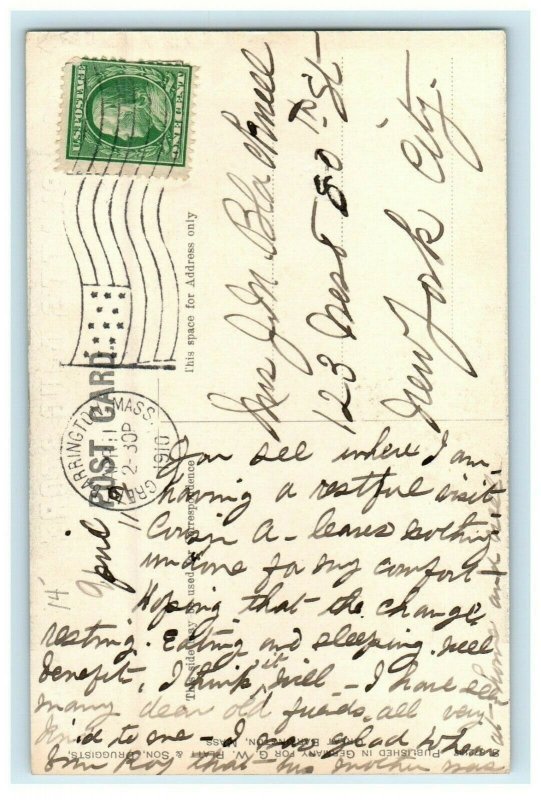 U.S. POSTAGE
ONE CENT
POST CARD
GREAT BARRINGTON, MASS.
APR 11
2-30P
1910
This space for Address only
Mrs J. M. Blackwell
123 West 80 TH St
New York City.
This side may be used for correspondence
April 11
14
You see where I am.
having a restful visit
Cousin A- leaves nothing
undone for my comfort-
Hoping that the change,
resting. Eating and sleeping. will
benefit, I think it will - I have seen
many dear old friends, all very
kind to me - I am glad when
that his mother was
at home and
PUBLISHED IN GERMANY FOR G. W. PLATT & SON, DRUGGISTS,
GREAT BARRINGTON, MASS.